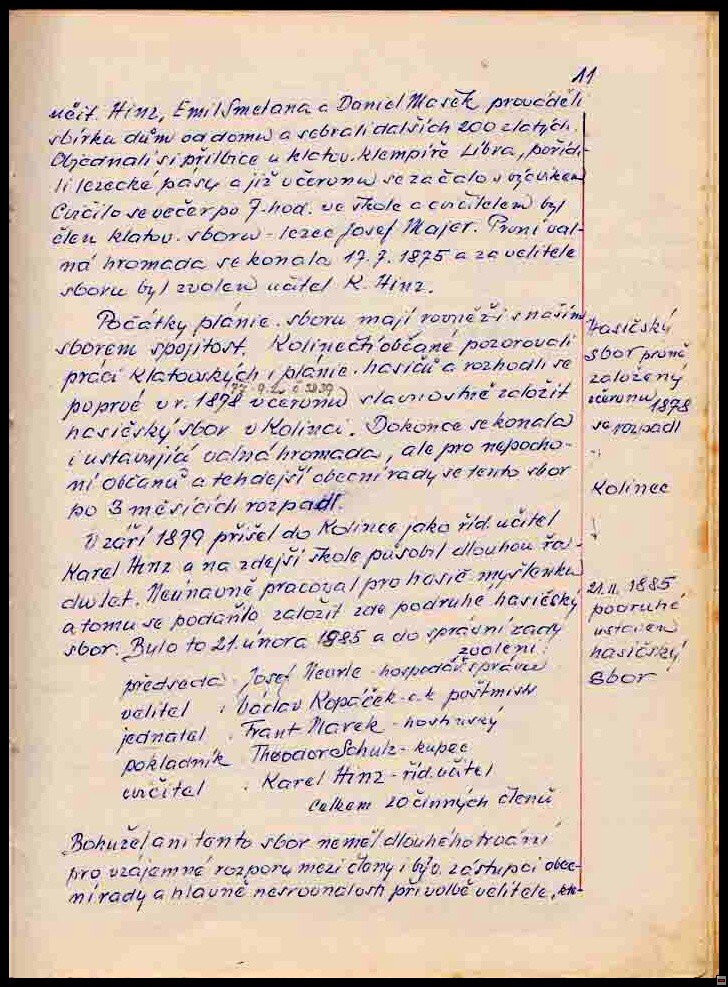 11
učit. Hinz, Emil Smetana a Daniel Mašek prováděli
sbírku dům od domu a sebrali dalších 200 zlatých.
Objednali si přilbice u klatov. klempíře Líbra, pořídi-
li lezecké pásy a již v červnu se začalo s výcvikem
Cvičilo se večer po 7. hod. ve škole a cvičitelem byl
člen klatov. sboru - lezec Josef Majer. První val-
ná hromada se konala 17. 7. 1875 a za velitele
sboru byl zvolen učitel K. Hinz.
Počátky plánic. sboru mají rovněž i s naším
sborem spojitost. Kolinečtí občané pozorovali
práci klatovských i plánic. hasičů a rozhodli se
poprvé v r. 1878 v červnu slavnostně založit
hasičský sbor v Kolinci. Dokonce se konala
i ustavující valná hromada, ale pro nepocho-
ní občanů a tehdejší obecní rady se tento sbor
po 3 měsících rozpadl.
V září 1879 přišel do Kolince jako říd. učitel
Karel Hinz a na zdejší škole působil dlouhou řa-
du let. Neúnavně pracoval pro hasič. myšlenku
a tomu se podařilo založit zde podruhé hasičský
sbor. Bylo to 21. února 1985 a do správní rady
zvoleni:
předseda : Josef Neurle - hospodář. správce
velitel : Václav Kopáček - c.k. poštmistr
jednatel : Frant. Marek - hostinský
pokladník Theodor Schulz - kupec
cvičitel : Karel Hinz - říd. učitel
celkem 20 činných členů
Bohužel ani tento sbor neměl dlouhého trvání
pro vzájemné rozpory mezi členy i býv. zástupci obec-
ní rady a hlavně nesrovnalosti při volbě velitele, kte-
Hasičský
sbor prvně
založený
v červnu 1878
se rozpadl
Kolinec
21. II. 1885
podruhé
ustaven
hasičský
sbor